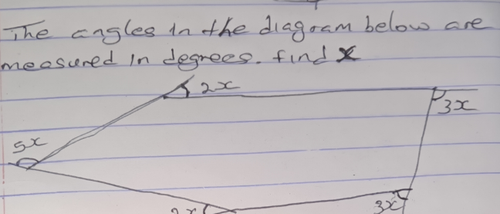 The angles in the diagram below are
measured in degrees. find x
2x
3x
5x
3x